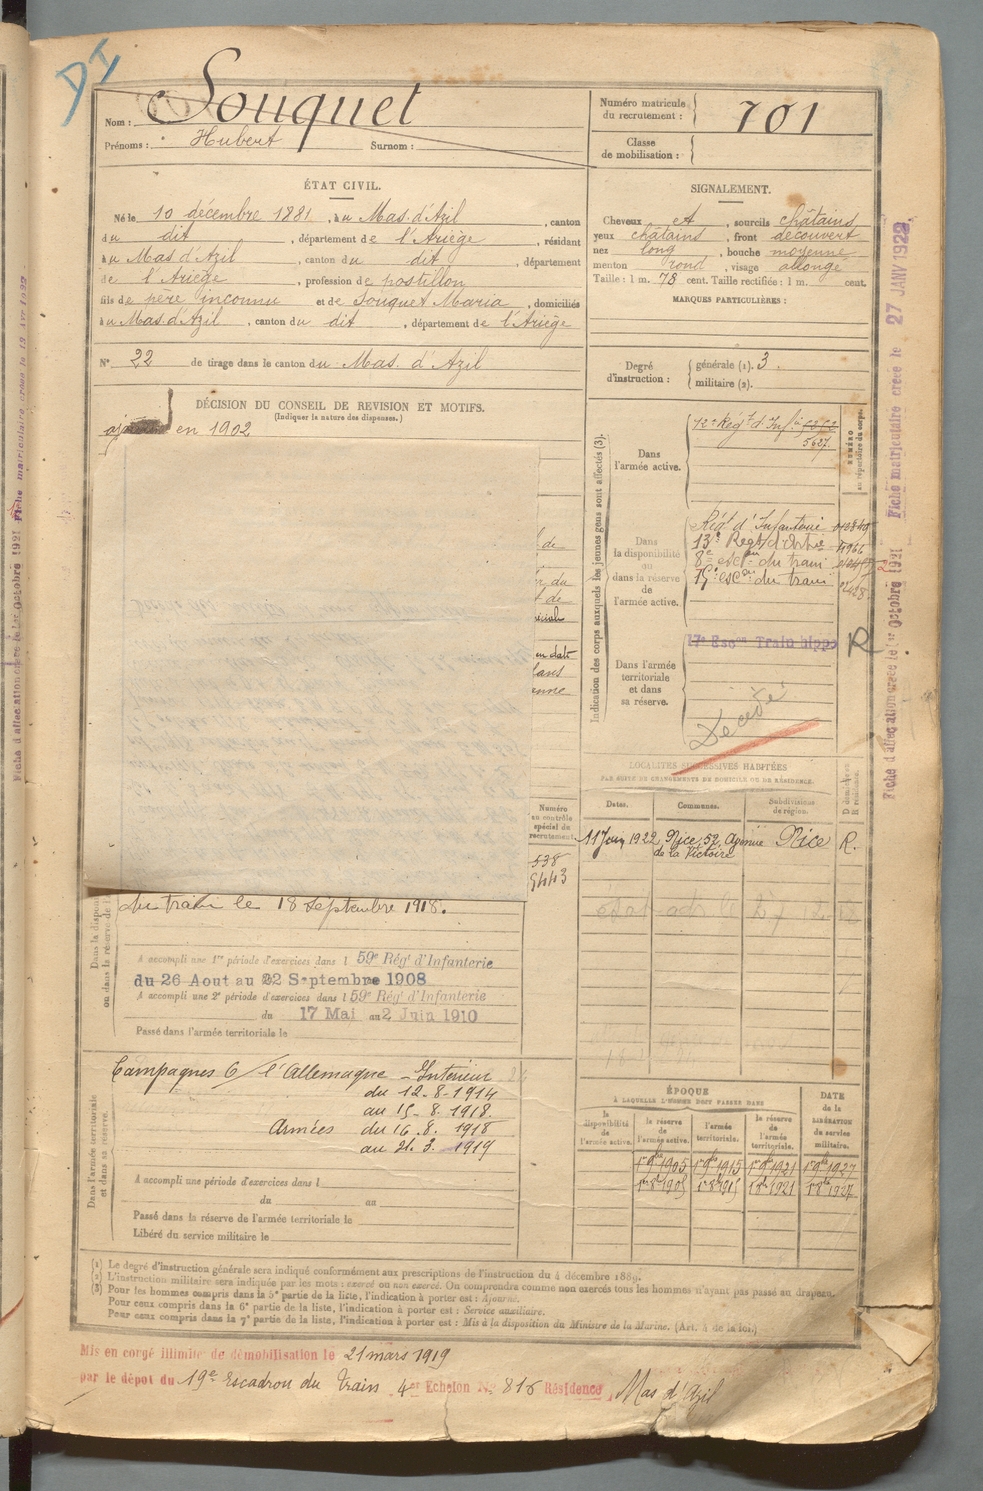 DI
Nom : Souquet
Prénoms : Hubert Surnom :
Numéro matricule du recrutement : 701
Classe de mobilisation :
ÉTAT CIVIL.
Né le 10 décembre 1881, à u Mas d'Azil, canton
du dit, département de l'Ariège, résidant
à u Mas d'Azil, canton du dit, département
de l'Ariège, profession de postillon
fils de père inconnu et de Souquet Maria, domiciliés
à u Mas d'Azil, canton du dit, département de l'Ariège
N° 22 de tirage dans le canton du Mas d'Azil
SIGNALEMENT.
Cheveux et, sourcils châtains
yeux châtains, front découvert
nez long, bouche moyenne
menton rond, visage allongé
Taille : 1 m. 78 cent. Taille rectifiée : 1 m. cent.
MARQUES PARTICULIÈRES :
Degré d'instruction : générale (1). 3.
militaire (2).
DÉCISION DU CONSEIL DE REVISION ET MOTIFS.
(Indiquer la nature des dispenses.)
en 1902
Indication des corps auxquels les jeunes gens sont affectés (3).
NUMÉRO au répertoire du corps.
Dans l'armée active.
5627.
Dans la disponibilité ou dans la réserve de l'armée active.
Rég.t d'Infanterie
13e Rég.t d'Art.ie
8e esc.on du train
15e esc.on du train
Dans l'armée territoriale et dans sa réserve.
17e Esc.on Train hippo
R
Décédé
LOCALITÉS SUCCESSIVES HABITÉES
PAR SUITE DE CHANGEMENTS DE DOMICILE OU DE RÉSIDENCE.
Dates. Communes. Subdivisions de région. D domicile ou R résidence.
1922 Nice, 52, Avenue de la Victoire Nice R.
Numéro au contrôle spécial du recrutement.
538
5443
du train le 18 Septembre 1918.
A accompli une 1re période d'exercices dans l 59e Rég.t d'Infanterie
du 26 Aout au 22 Septembre 1908
A accompli une 2e période d'exercices dans l 59e Rég.t d'Infanterie
du 17 Mai au 2 Juin 1910
Passé dans l'armée territoriale le
Dans l'armée territoriale et dans sa réserve.
Campagnes C/ l'Allemagne - Intérieur
du 12-8-1914
au 15-8-1918.
Armées du 16.8.1918
au 21.3.1919
A accompli une période d'exercices dans l
du au
Passé dans la réserve de l'armée territoriale le
Libéré du service militaire le
ÉPOQUE
À LAQUELLE L'HOMME DOIT PASSER DANS
la disponibilité de l'armée active.
la réserve de l'armée active.
l'armée territoriale.
la réserve de l'armée territoriale.
DATE de la LIBÉRATION du service militaire.
1er 9bre 1905 1er 9bre 1915 1er 9bre 1921 1er 9bre 1927
(1) Le degré d'instruction générale sera indiqué conformément aux prescriptions de l'instruction du 4 décembre 1889.
(2) L'instruction militaire sera indiquée par les mots : exercé ou non exercé. On comprendra comme non exercés tous les hommes n'ayant pas passé au drapeau.
(3) Pour les hommes compris dans la 5e partie de la liste, l'indication à porter est : Ajourné.
Pour ceux compris dans la 6e partie de la liste, l'indication à porter est : Service auxiliaire.
Pour ceux compris dans la 7e partie de la liste, l'indication à porter est : Mis à la disposition du Ministre de la Marine. (Art. 4 de la loi.)
Mis en congé illimité de démobilisation le 21 mars 1919
par le dépot du 19e Escadron du Train 4e Echelon No 816 Résidence Mas d'Azil
Fiche d'affectation créée le 1er Octobre 1921 Fiche matriculaire créée le 27 JANV 1922